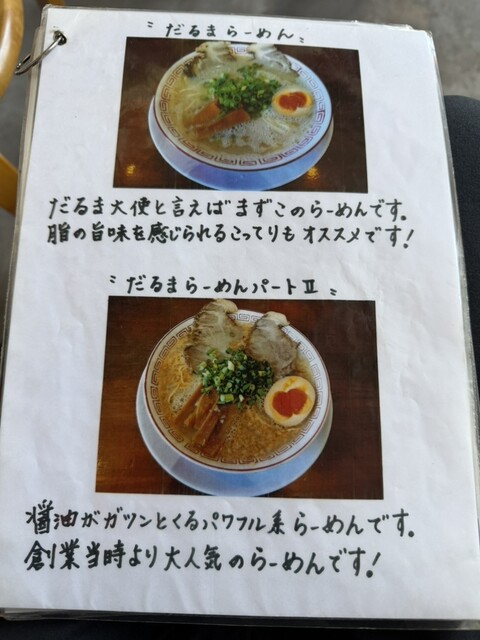 〝だるまらーめん〟
だるま大使と言えばまずこのらーめんです。
脂の旨味を感じられるこってりもオススメです!
〝だるまらーめんパートⅡ〟
醤油がガツンとくるパワフル系らーめんです。
創業当時より大人気のらーめんです!